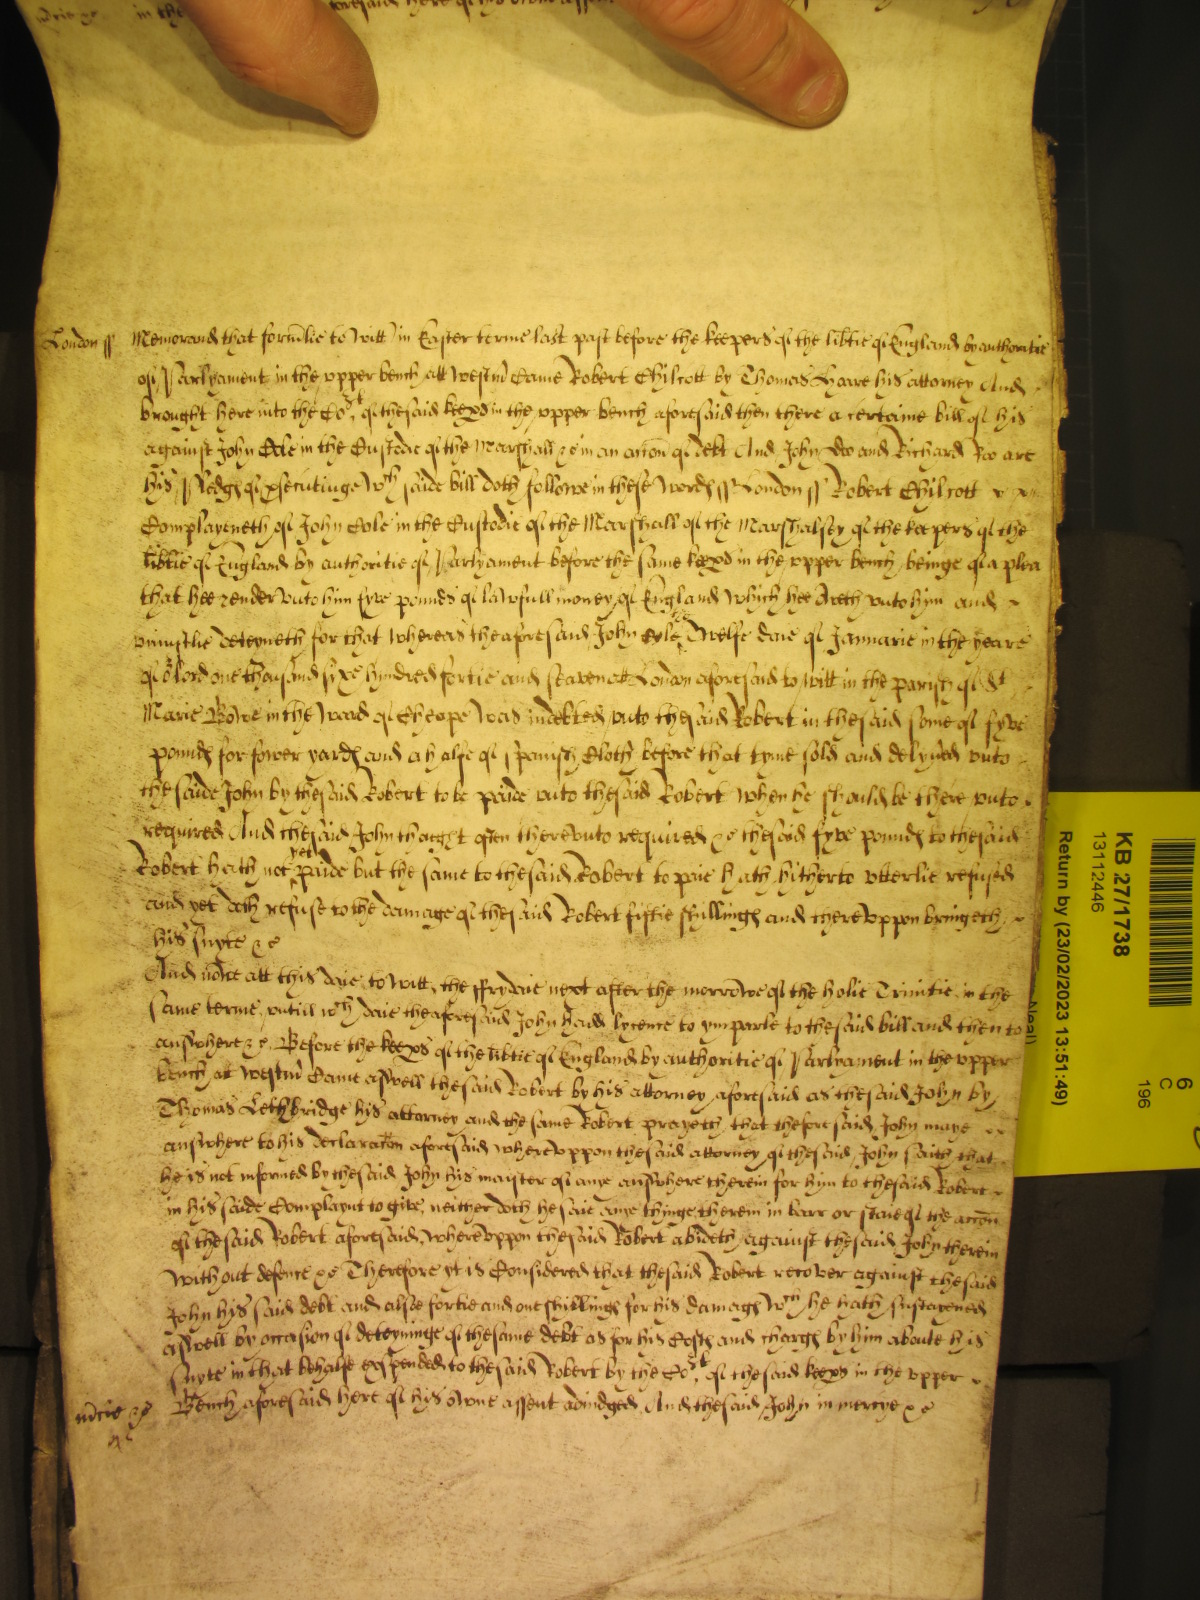 aforesaid here of his owne assent
London ss Memorand that form̃lie to Witt in Easter terme last past before the keepers of the lib̃tie of England by authoritie
of Parlyament in the vpper bench att Westm̃ Came Robert Chilcott by Thomas Haare his attorney And
brought here into the Cort of thesaid keep̃s in the vpper bench aforesaid then there a certaine bill of his
against John Cole in the Custodie of the Marshall &c in an acc̃on of debt And John Doo and Richard Roo are
his Pledgs of p̃secutinge wch saide bill doth followe in these Words ss London ss Robert Chilcott
Complayneth of John Cole in the Custodie of the Marshall of the Marshalsey of the keepers of the
lib̃tie of England by authoritie of Parlyament before the same keep̃s in the vpper bench beinge of a plea
that hee render vnto him fyve pounds of lawfull money of England Which hee oweth vnto hym and
vniustlie deteyneth for that whereas the aforesaid John Cole Twelfe daie of Januarie in the yeare
of o lord one thousand sixe hundred fortie and seaven att London aforesaid to witt in the parish of St
Marie Bowe in the Ward of Cheape Was indebted vnto thesaid Robert in thesaid some of fyve
pounds for fower yards and a halfe of Spanish Cloth before that tyme sold and delyṽed vnto
the saide John by thesaid Robert to be paide vnto thesaid Robert When he should be there vnto
required And thesaid John thought often therevnto required &c thesaid fyve pounds to thesaid
Robert hath not yet paide but the same to thesaid Robert to paie hath hitherto vtterlie refused
and yet doth refuse to the damage of thesaid Robert fiftie shillings and therevppon bringeth
his suyte &c
And nowe att this daie to witt the ffrydaie next after the morrowe of the holie Trinitie in the
same terme vntill wch daie the aforesaid John hadd lycence to ymparle to thesaid bill and then to
answhere &c Before the keep̃s of the lib̃tie of England by authoritie of Parlyament in the vpper
bench at Westm̃ Came aswell thesaid Robert by his attorney aforesaid as thesaid John by
Thomas Lethbridge his attorney and the same Robert prayeth that theforesaid John maye
answhere to his declarac̃on aforesaid wherevppon thesaid attorney of thesaid John saith that
he is not informed by thesaid John his maister of anye answhere therein for hym to thesaid Robert
in his saide Complaynt to give, neither doth he saie anye thinge therein in barr or staie of the acc̃on
of thesaid Robert aforesaid, wherevppon thesaid Robert abideth against thesaid John therein
without defence &c Therefore yt is Considered that thesaid Robert recover against thesaid
John his said debt and alsoe fortie and one shillings for his damags wch he hath susteyned
aswell by occasion of deteyninge of thesame debt as for his Costs and chargs by him aboute his
suyte in that behalfe expended to thesaid Robert by the Cort of thesaid keep̃s in the vpper
m̃cie &c Bench aforesaid here of his owne assent adiudged And thesaid John in mercye &c
KB 27/1738
13112446
Return by (23/02/2023 13:51:49)
6
C
196